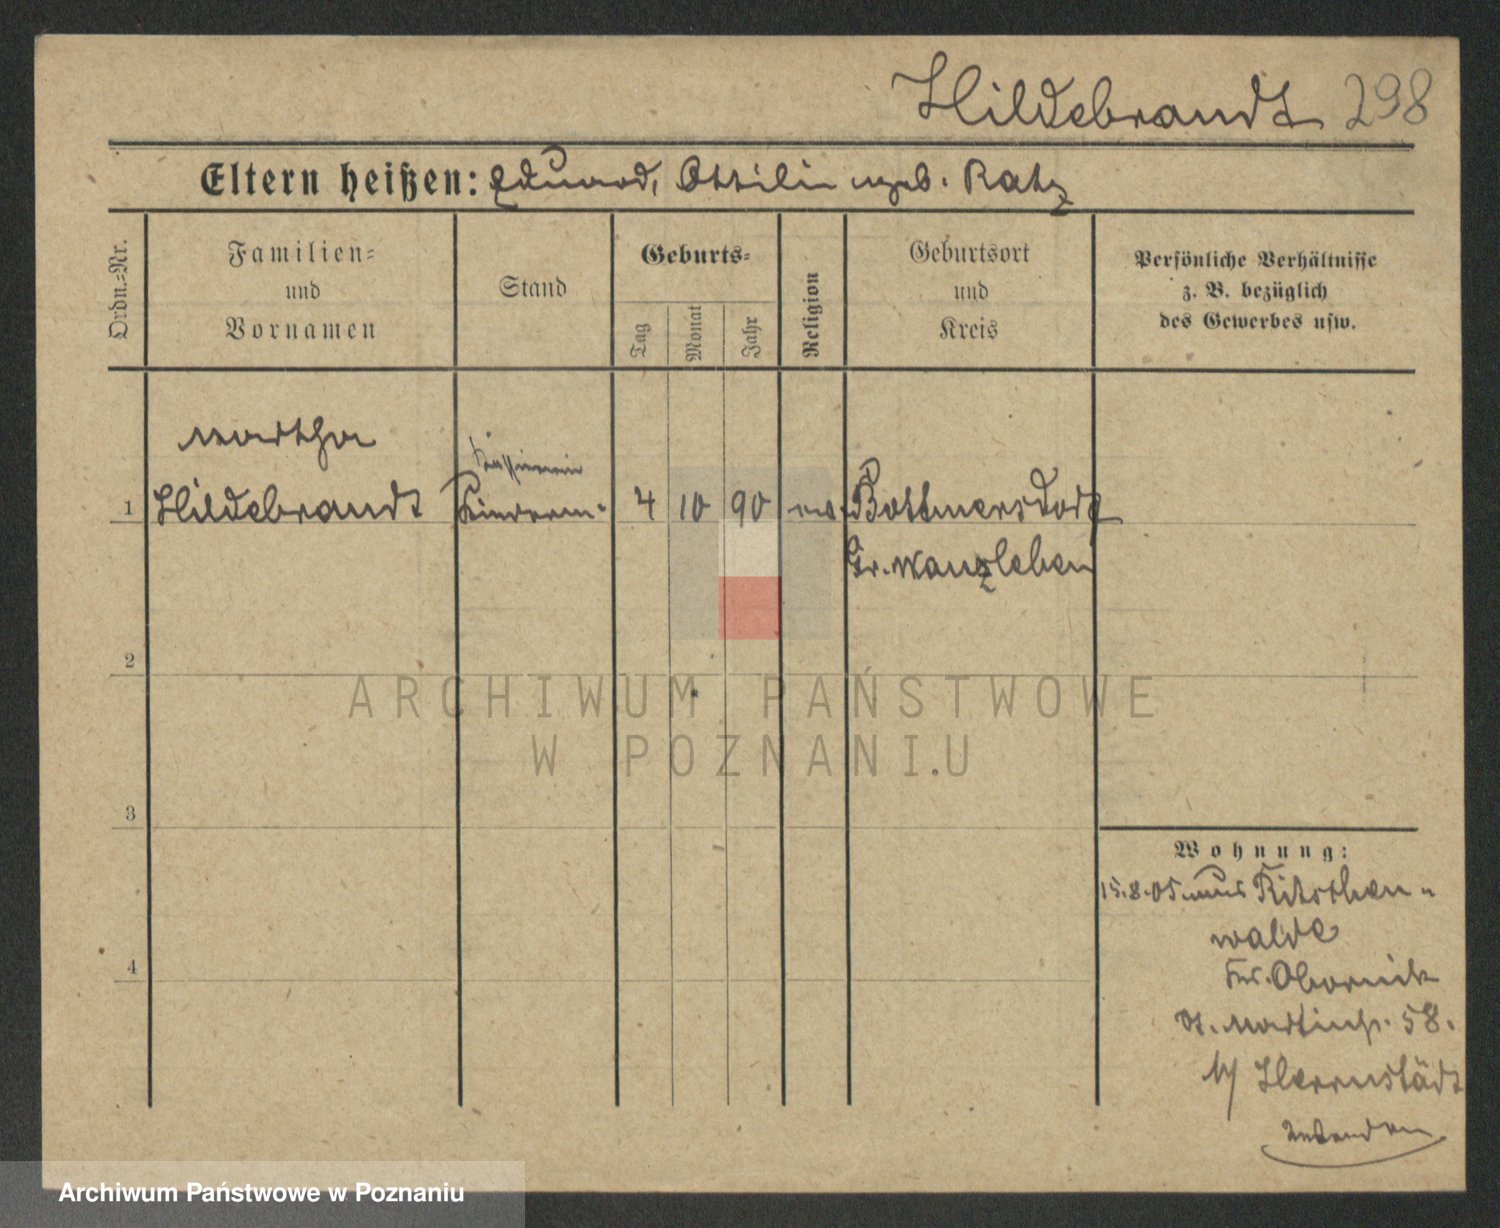 Hildebrandt 298
Eltern heißen: Eduard, Ottilie geb. Ratz
Ordn.-Nr.
Familien-
und
Vornamen
Stand
Geburts-
Tag
Monat
Jahr
Religion
Geburtsort
und
Kreis
Persönliche Verhältnisse
z. B. bezüglich
des Gewerbes usw.
Martha
Kassiererin
1 Hildebrandt 4 10 90 ev. Bottmersdorf
Kr. Wanzleben
2
3
4
Wohnung:
15.8.05 aus
walde
Kr. Obornik
St. Martinstr. 58.
Herrnstädt
wenden
ARCHIWUM PAŃSTWOWE
W POZNANIU
Archiwum Państwowe w Poznaniu